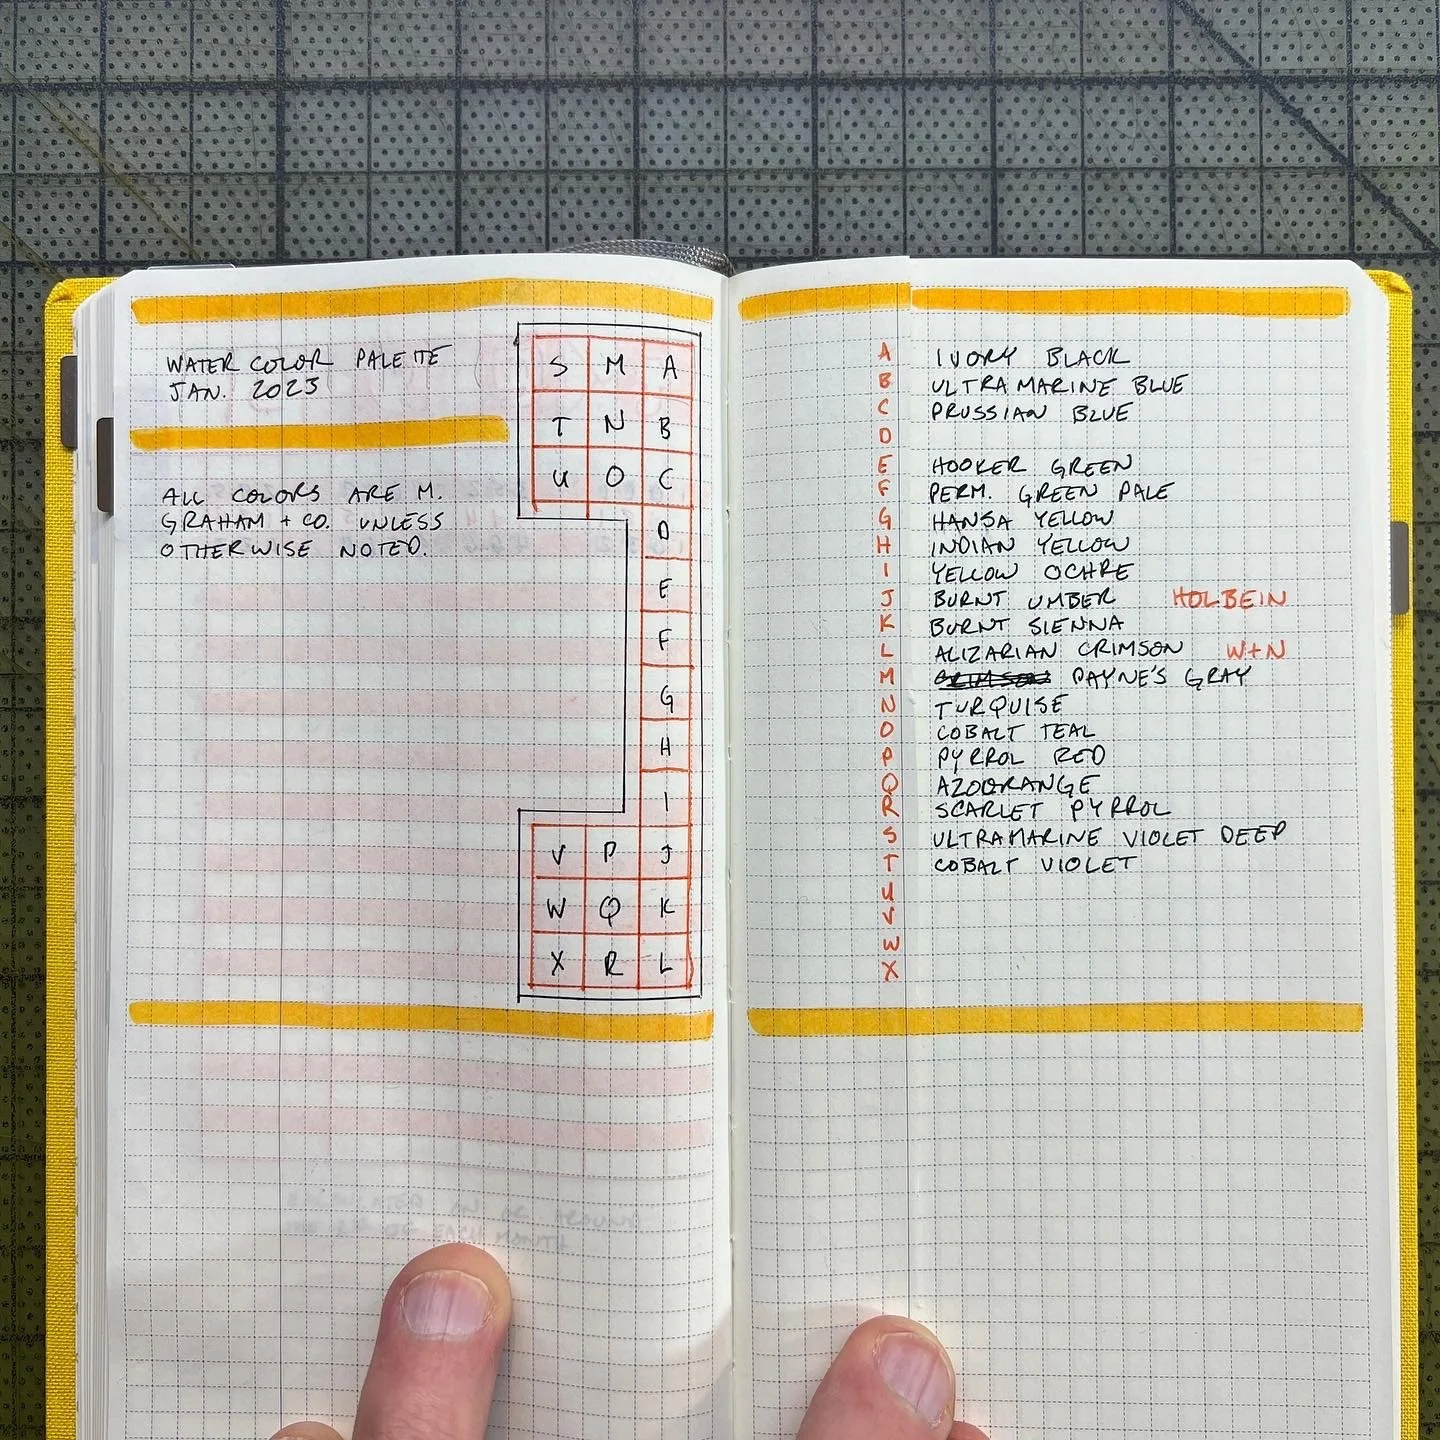 WATER COLOR PALETTE
JAN. 2023
ALL COLORS ARE M.
GRAHAM + CO. UNLESS
OTHERWISE NOTED.
S M A
T N B
U O C
D
E
F
G
H
I
V P J
W Q K
X R L
A IVORY BLACK
B ULTRAMARINE BLUE
C PRUSSIAN BLUE
D
E HOOKER GREEN
F PERM. GREEN PALE
G HANSA YELLOW
H INDIAN YELLOW
I YELLOW OCHRE
J BURNT UMBER HOLBEIN
K BURNT SIENNA
L ALIZARIAN CRIMSON W+N
M PAYNE'S GRAY
N TURQUISE
O COBALT TEAL
P PYRROL RED
Q AZOORANGE
R SCARLET PYRROL
S ULTRAMARINE VIOLET DEEP
T COBALT VIOLET
U
V
W
X